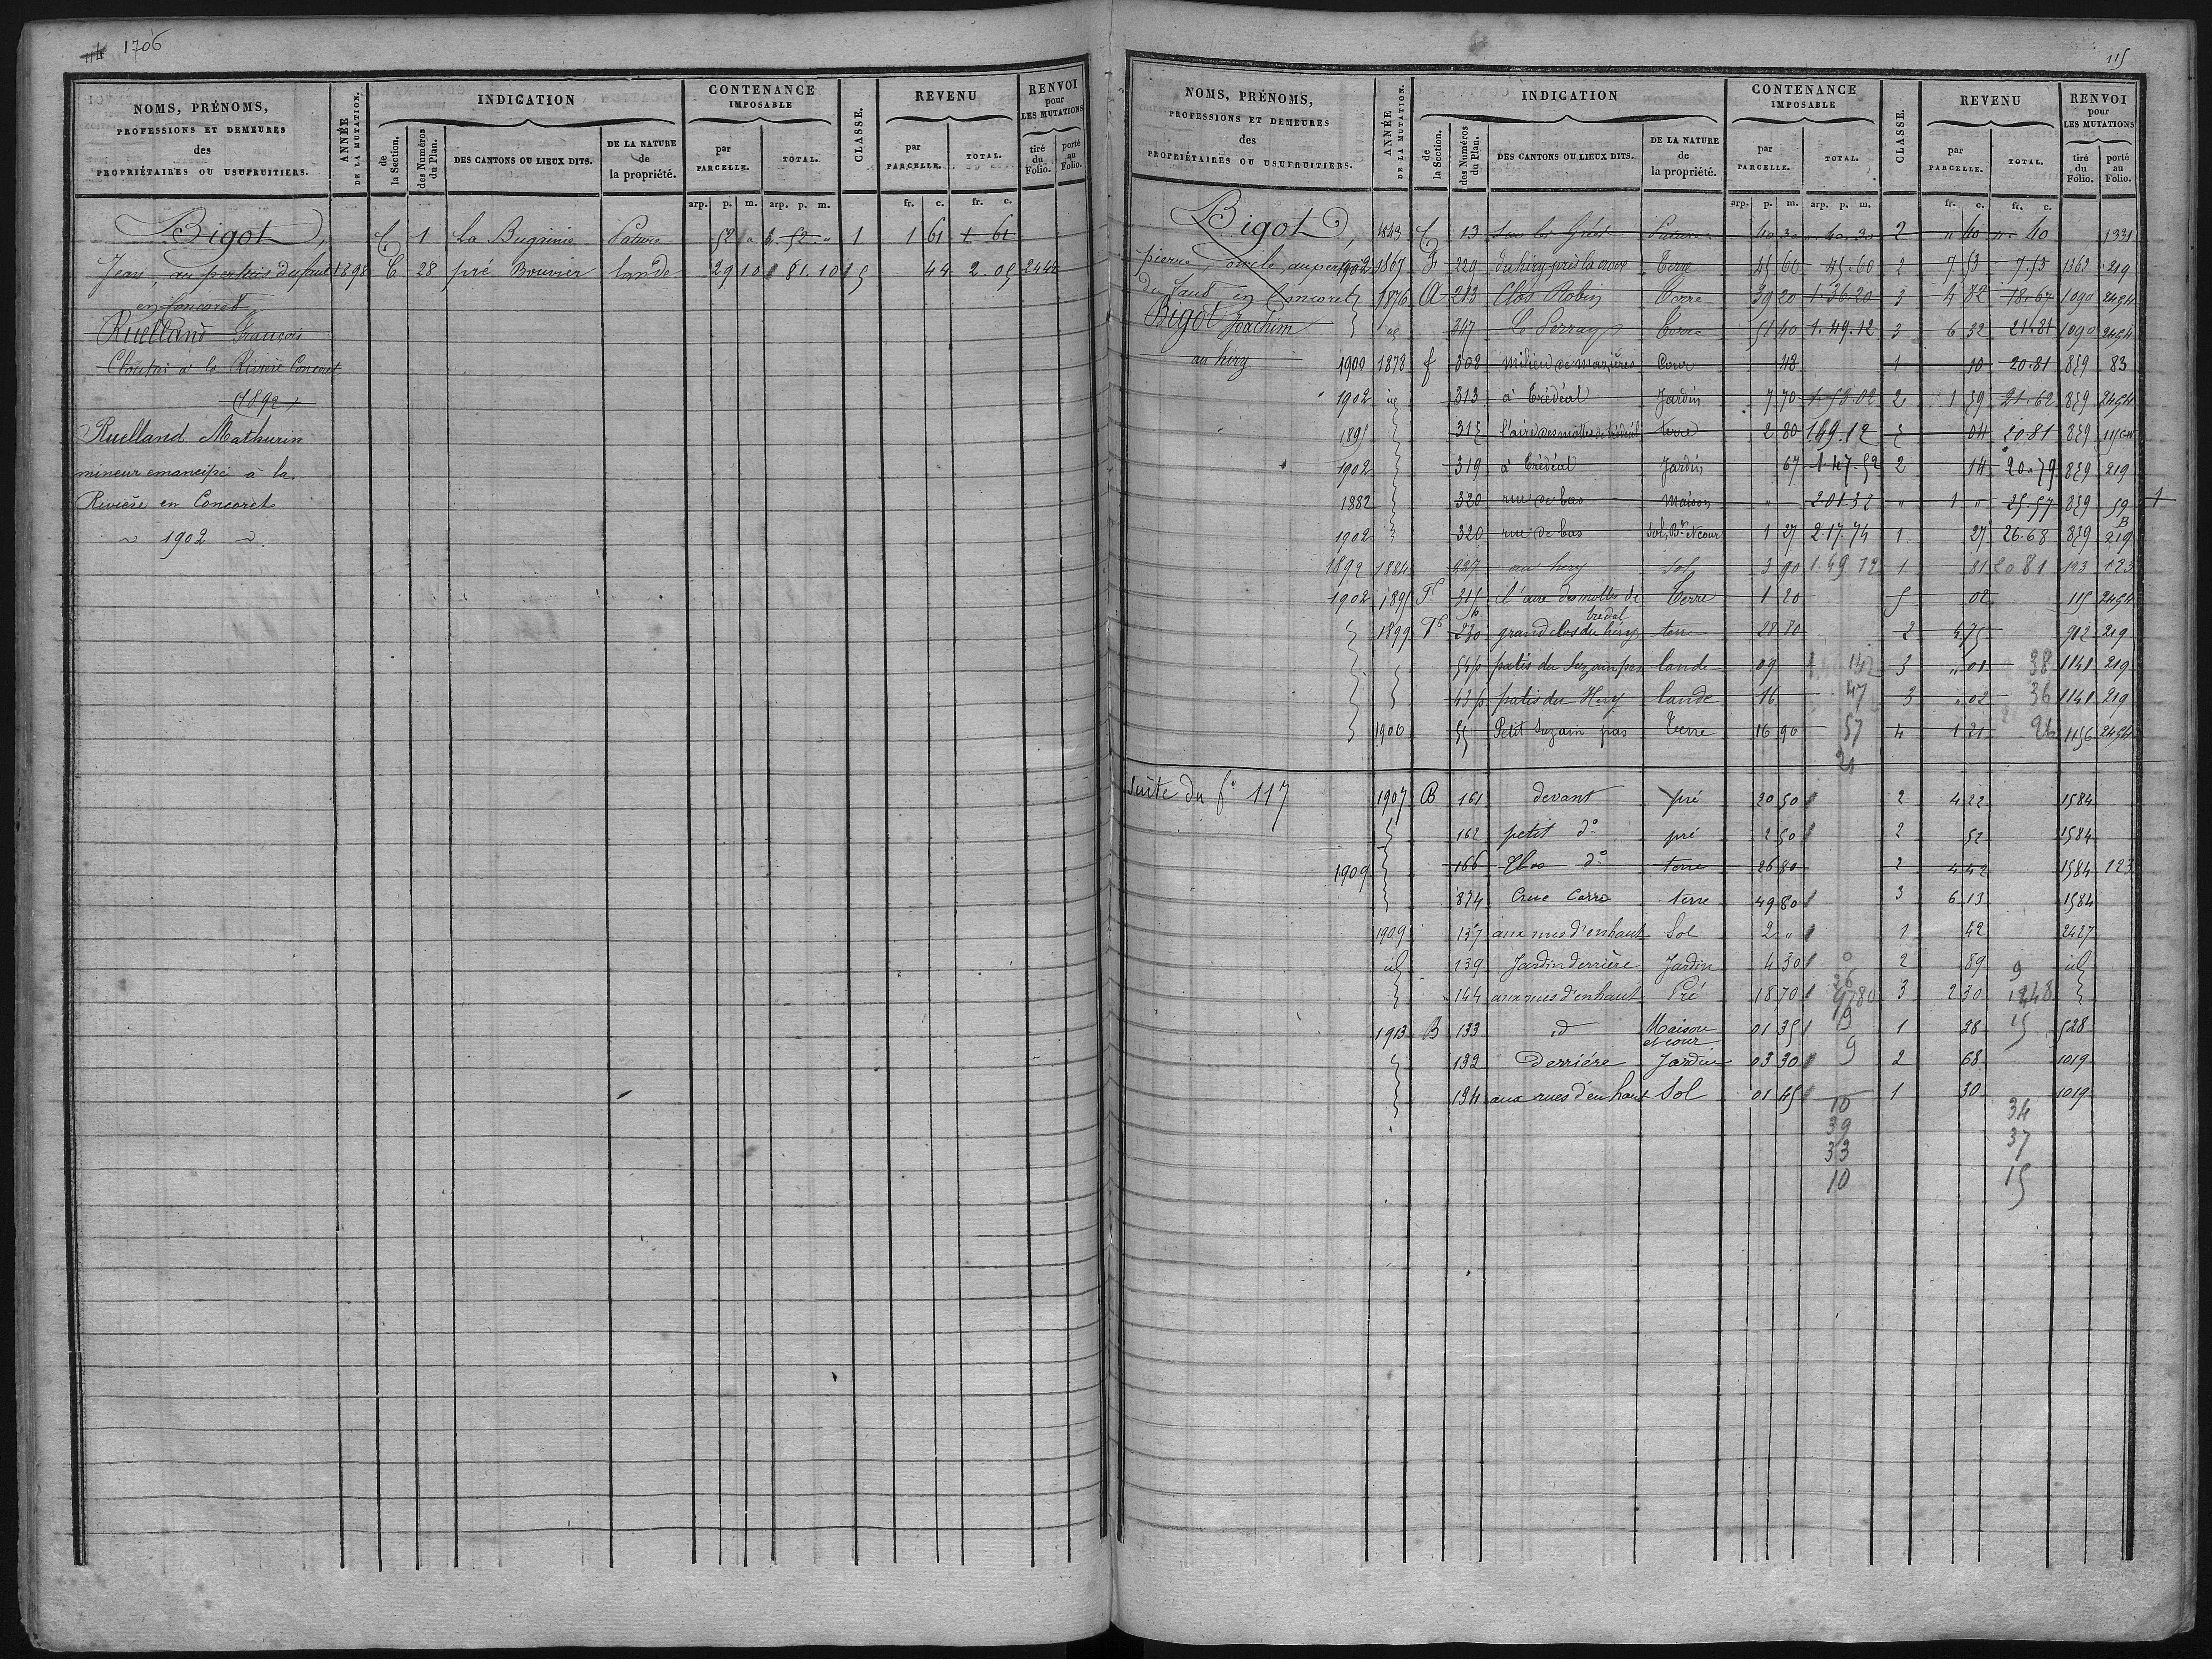 1706
NOMS, PRÉNOMS,
PROFESSIONS ET DEMEURES
des
PROPRIÉTAIRES OU USUFRUITIERS.
ANNÉE
DE LA MUTATION.
INDICATION
de la Section.
des Numéros du Plan.
DES CANTONS OU LIEUX DITS.
DE LA NATURE de la propriété.
CONTENANCE
IMPOSABLE
par PARCELLE.
TOTAL.
CLASSE.
REVENU
par PARCELLE.
TOTAL.
RENVOI
pour
LES MUTATIONS
tiré du Folio.
porté au Folio.
arp. p. m. arp. p. m. fr. c. fr. c.
Bigot, C 1 La Bugainie Pature 52 " 52 " 1 1 61 1 61
Jean, au pertuis du faut 1898 C 28 pré Bouvier lande 29 10 81.10 5 44 2.05 2444
en Concoret
Ruelland François
à la Rivière Concoret
1892
Ruelland Mathurin
mineur emancipé à la
Rivière en Concoret
1902
115
NOMS, PRÉNOMS,
PROFESSIONS ET DEMEURES
des
PROPRIÉTAIRES OU USUFRUITIERS.
ANNÉE
DE LA MUTATION.
INDICATION
de la Section.
des Numéros du Plan.
DES CANTONS OU LIEUX DITS.
DE LA NATURE de la propriété.
CONTENANCE
IMPOSABLE
par PARCELLE.
TOTAL.
CLASSE.
REVENU
par PARCELLE.
TOTAL.
RENVOI
pour
LES MUTATIONS
tiré du Folio.
porté au Folio.
arp. p. m. arp. p. m. fr. c. fr. c.
Bigot, 1843 C 13 Pature 40 30 " 40.30 2 " 40 " 40 1331
pierre, oncle, au 1902 1867 F 229 du hiry près la croix Terre 45 60 45.60 2 7 53 7.53 1363 219
du faut en Concoret 1876 A 213 Clos Robin Terre 39 20 1.36.20 3 4 82 18.67 1090 2454
Bigot Joachim id 347 Le Perray Terre 51 40 1.49.12 3 6 32 21.81 1090 2454
au hiry 1900 1878 f 308 milieu de mazières Cour 48 1 10 20.81 859 83
1902 id 313 à Trédéal Jardin 7 70 1.53.02 2 1 59 21.62 859 2454
1895 315 l'aire des mottes de trédéal terre 2 80 1.49.12 5 04 20.81 859 115
1902 319 à Trédéal Jardin 67 1.47.52 2 14 20.79 859 219
1882 320 rue de bas maison " 2.01.32 " 1 " 25.57 859 59 1
1902 320 rue de bas Sol, Bn et cour 1 27 2.17.74 1 27 26.68 859 219
1892 1884 927 au hiry Sol 3 90 1 49 12 1 81 20 81 123 123
1902 1895 F 315 p l'aire des mottes de tredal Terre 1 20 5 02 115 2454
1899 F 230 grand clos du hiry terre 28 80 2 4 75 912 219
54 p patis du Suzain pas lande 09 142 3 " 01 38 1141 219
43 p patis du Hiry lande 16 47 3 " 02 36 1141 219
1906 55 Petit Suzain pas Terre 16 90 57 4 1 21 26 1156 2454
21
Suite du f° 117 1907 B 161 devant pré 20 50 2 4 22 1584
162 petit d° pré 2 50 2 52 1584
1909 166 Clos d° terre 26 80 2 4 42 1584 123
874 Crue Carro terre 49 80 3 6 13 1584
1909 137 aux rues d'en haut Sol 2 " 1 42 2427
id 139 Jardin derrière Jardin 4 30 2 89 9 id
144 aux rues d'en haut Pré 18 70 3 2 30
1913 B 133 id Maison et cour 01 35 19 1 28 15 528
132 Derrière Jardin 03 30 9 2 68 1019
134 aux rues d'en haut Sol 01 45 10 1 30 1019
34
39 37
33
10 15